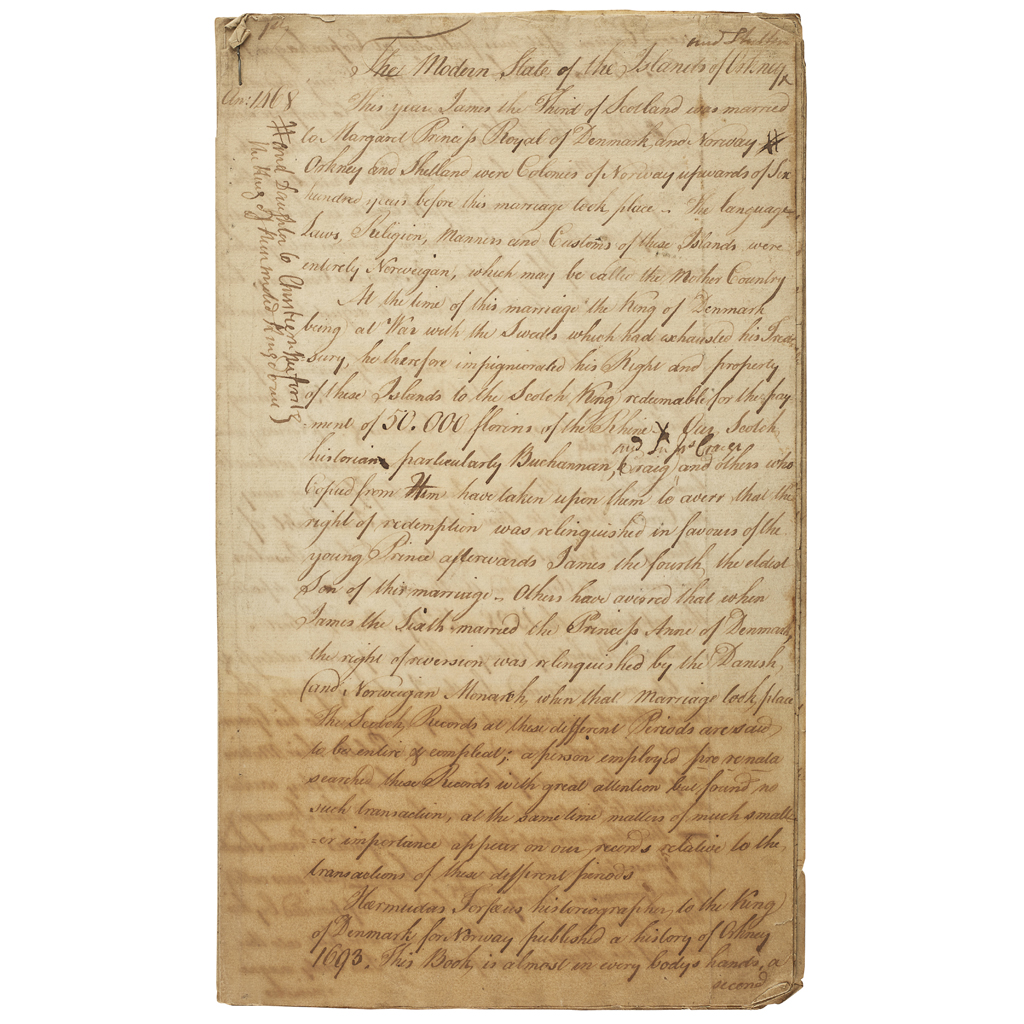 and Shetland
The Modern State of the Islands of Orkney
An: 1468
This year James the Third of Scotland was married
to Margaret Princess Royal of Denmark and Norway #
Orkney and Shetland were Colonies of Norway upwards of Six
hundred years before this marriage took place. The language
Laws, Religion, Manners and Customs of these Islands were
entirely Norweigan, which may be called the Mother Country
At the time of this marriage the King of Denmark
being at War with the Sweeds which had exhausted his Trea-
sury, he therefore impignorated his Right and property
of these Islands to the Scotch King redeemable for the pay
=ment of 50.000 florins of the Rhine X Our Scotch
historians particularly Buchannan, Craig and others who
Copied from Him have taken upon them to averr that the
right of redemption was relinquished in favours of the
young Prince afterwards James the fourth the eldest
Son of this marriage - Others have averred that when
James the Sixth married the Princess Anne of Denmark,
the right of reversion was relinquished by the Danish,
(and Norweigan Monarch, when that Marriage took place
The Scotch Records at these different Periods are said
to be entire & compleat; a person employed pro re nata
searched these Records with great attention but found no
such transaction, at the same time matters of much small-
=er importance appear on our records relative to the
transactions of these different periods
Thermudas Torfæus historiographer to the King
of Denmark for Norway published a history of Orkney
1693. This Book is almost in every bodys hands, a
second
# and Daughter to Christiern the first
the King of